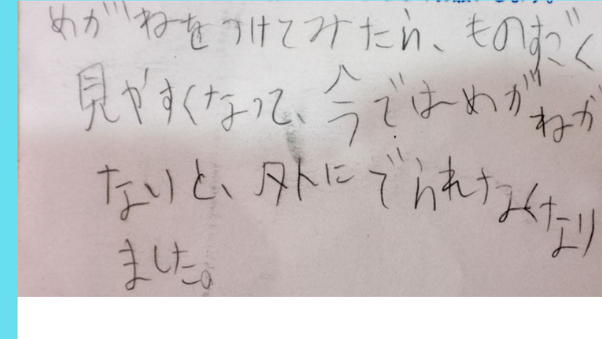 めがねをつけてみたら、ものすごく
見やすくなって、今ではめがねが
ないと、外にでられなくなり
ました。